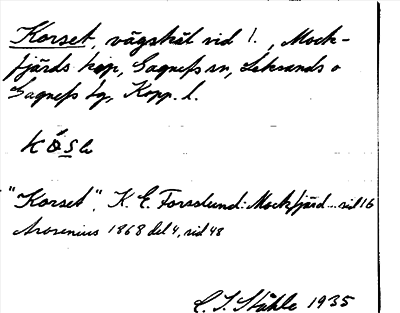 Korset, vägskäl vid l. , Mock-
fjärds kap, Gagnefs sn, Leksands o
Gagnefs tg, Kopp. l.
"Korset", K. E. Forsslund: Mockfjärd ... sid 16
Arosenius 1868 del 4, sid 48
C. I. Ståhle 1935